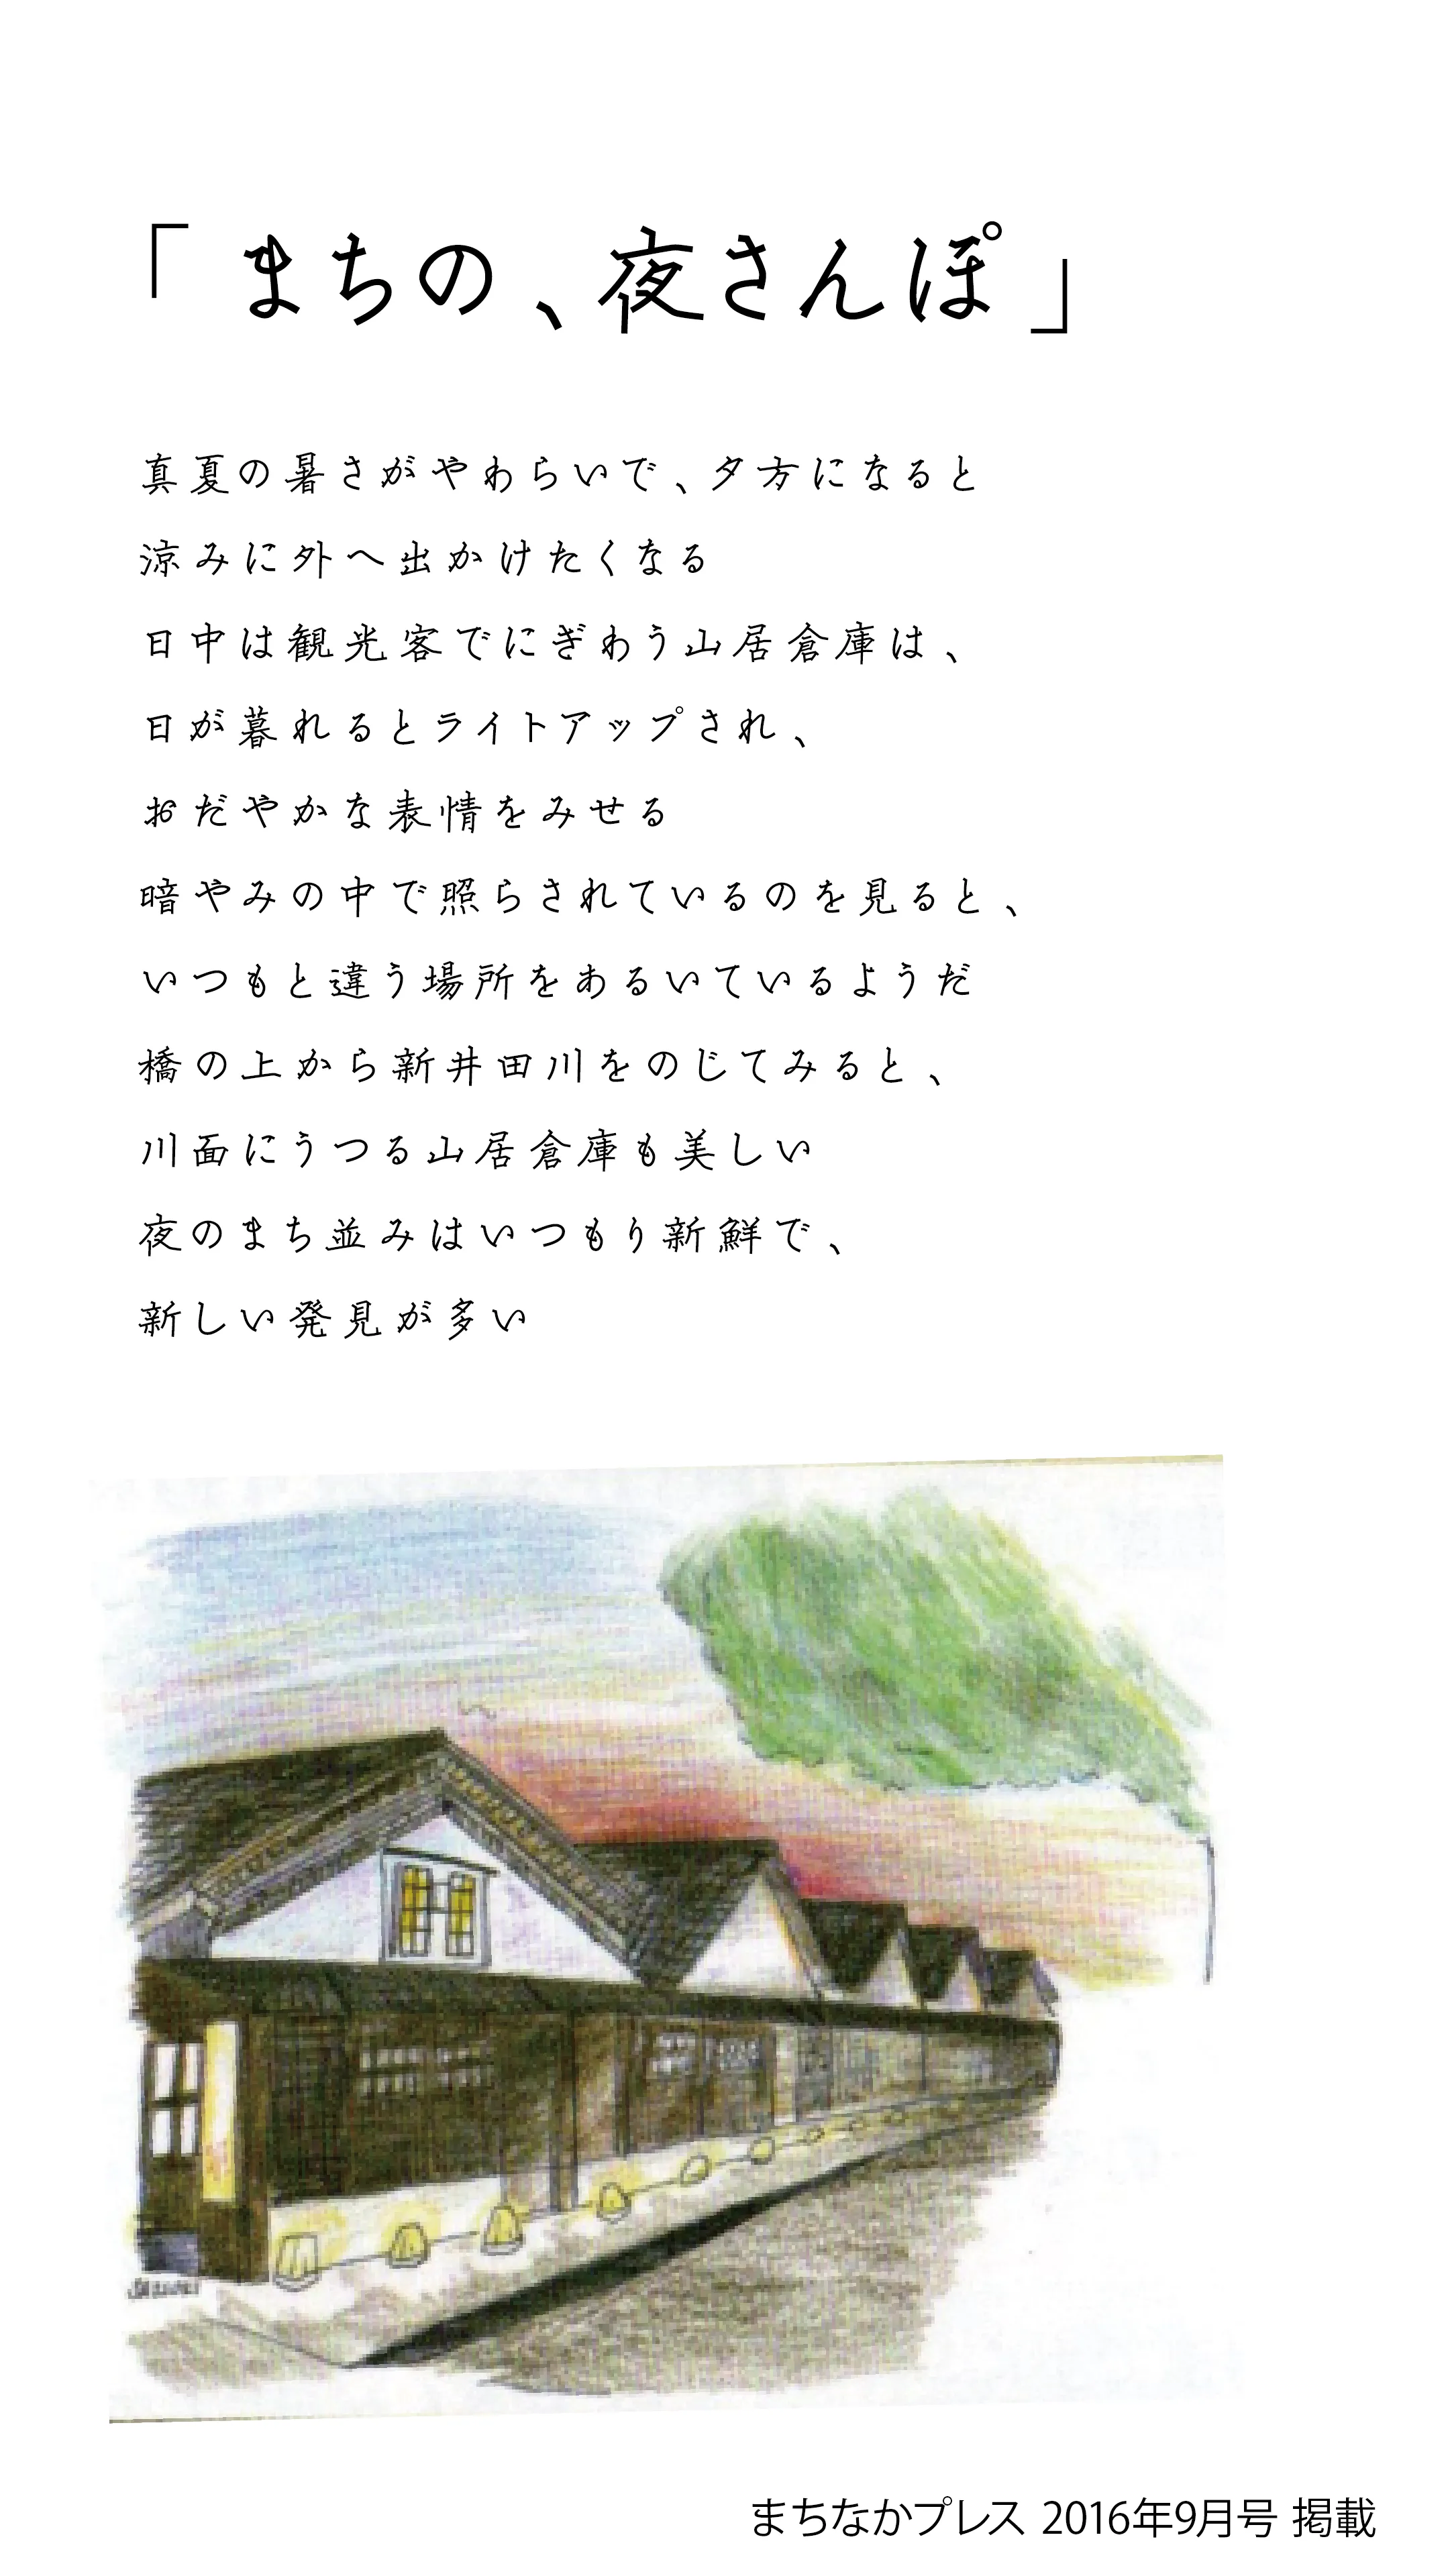 「まちの、夜さんぽ」
真夏の暑さがやわらいで、夕方になると
涼みに外へ出かけたくなる
日中は観光客でにぎわう山居倉庫は、
日が暮れるとライトアップされ、
おだやかな表情をみせる
暗やみの中で照らされているのを見ると、
いつもと違う場所をあるいているようだ
橋の上から新井田川をのじてみると、
川面にうつる山居倉庫も美しい
夜のまち並みはいつもり新鮮で、
新しい発見が多い
まちなかプレス 2016年9月号 掲載